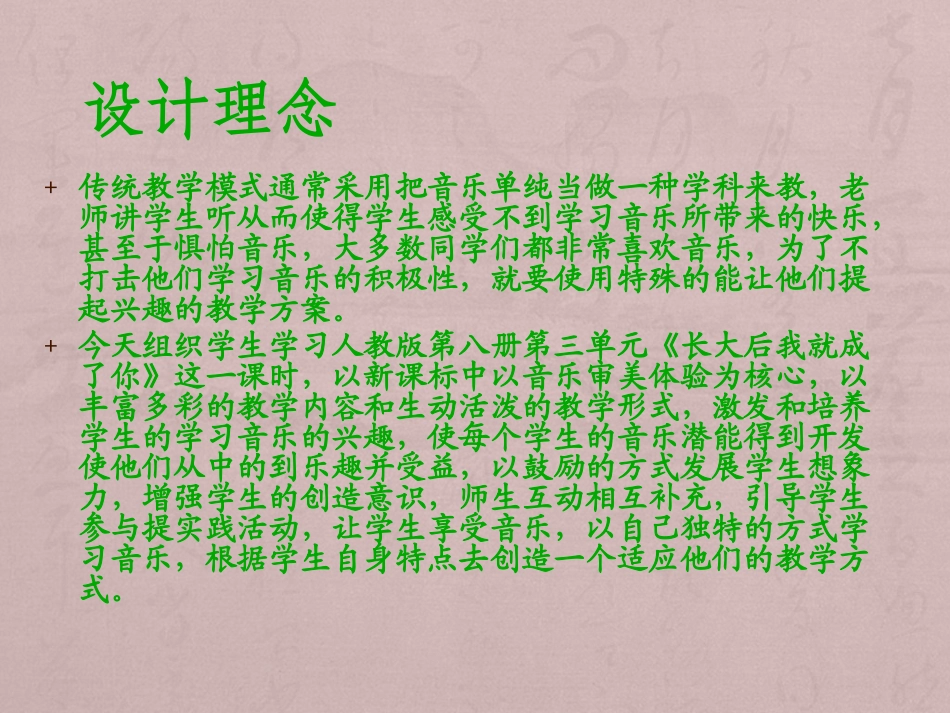 设计理念
+ 传统教学模式通常采用把音乐单纯当做一种学科来教，老
师讲学生听从而使得学生感受不到学习音乐所带来的快乐，
甚至于惧怕音乐，大多数同学们都非常喜欢音乐，为了不
打击他们学习音乐的积极性，就要使用特殊的能让他们提
起兴趣的教学方案。
+ 今天组织学生学习人教版第八册第三单元《长大后我就成
了你》这一课时，以新课标中以音乐审美体验为核心，以
丰富多彩的教学内容和生动活泼的教学形式，激发和培养
学生的学习音乐的兴趣，使每个学生的音乐潜能得到开发
使他们从中的到乐趣并受益，以鼓励的方式发展学生想象
力，增强学生的创造意识，师生互动相互补充，引导学生
参与提实践活动，让学生享受音乐，以自己独特的方式学
习音乐，根据学生自身特点去创造一个适应他们的教学方
式。